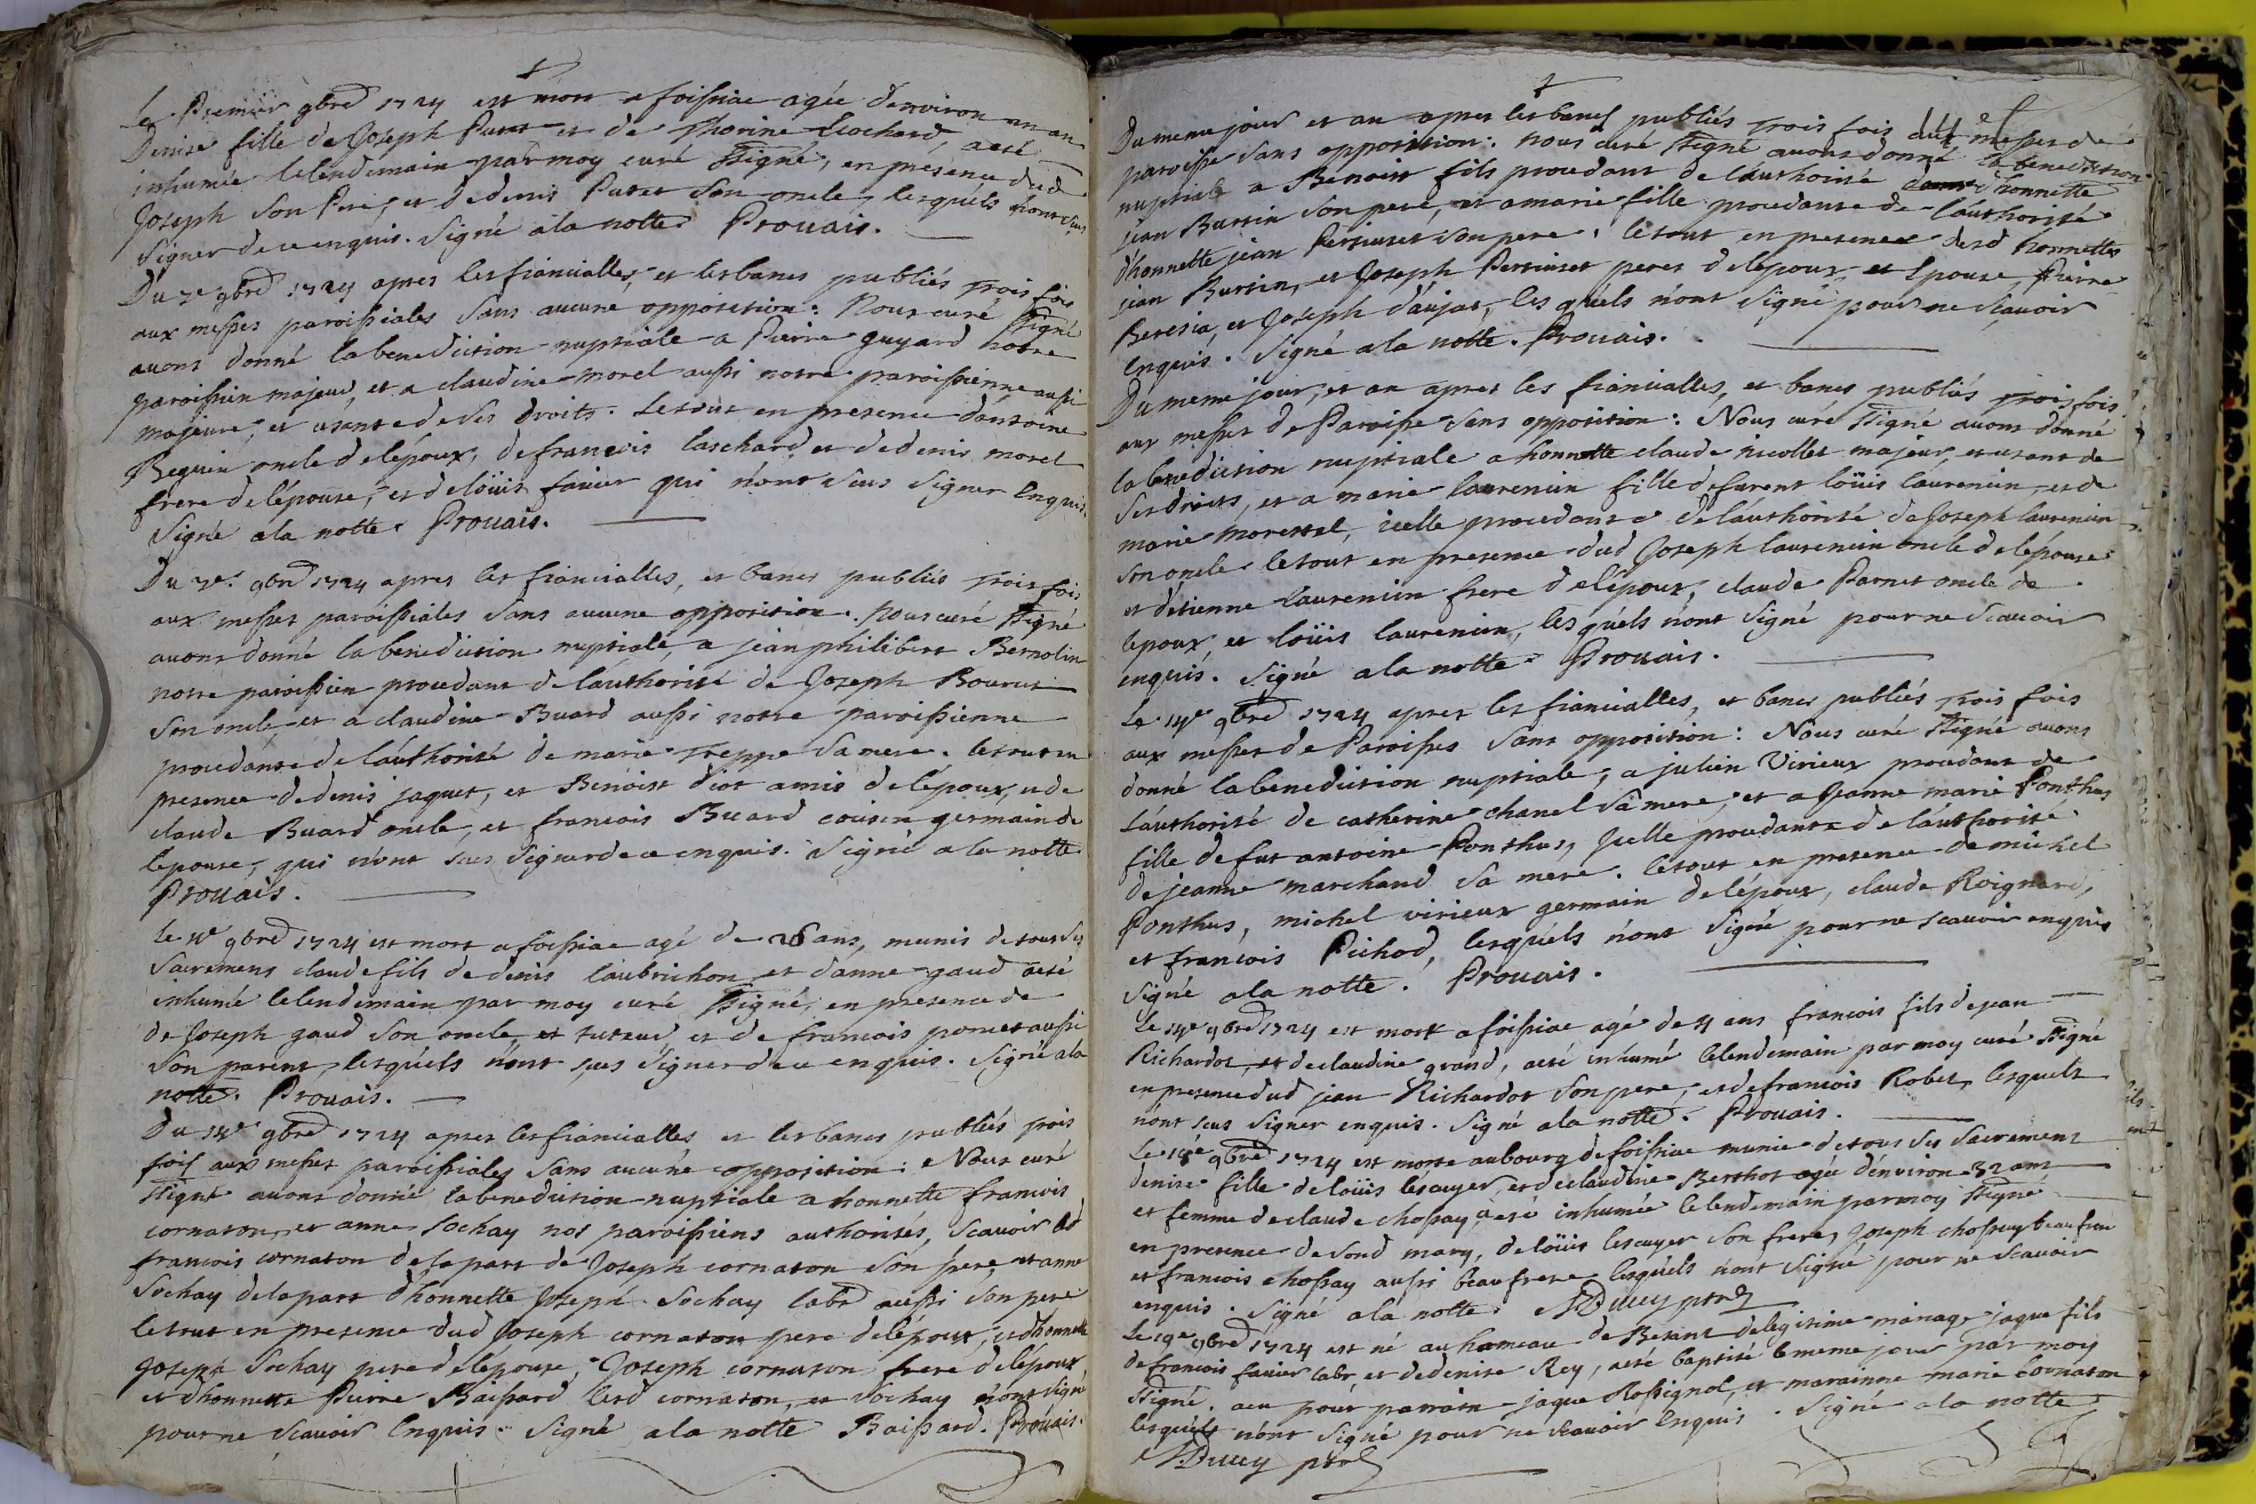 Le Premier 9bre 1724 est mort a foissiac agée denviron un an
Denise fille de Joseph Putet et de Thorine Lochard, aeté
inhumée lelendemain par moy curé ssigné, en présence dud
Joseph son Pere, et de denis Putet son oncle, lesquéls n'ont sçus
signer de ce enquis. Signé ala notte Prouais.
Du 7e 9bre 1724 apres les fiancialles, et les bancs publiés trois fois
aux messes paroissiales sans aucune opposition: Nous curé ssigné
avons donné la benediction nuptiale a Pierre guyard notre
paroissien majeur, et a claudine morel aussi notre paroissienne aussi
majeure, et usante de ses droits. Le tout en presence d'antoine
Beguin oncle de lépoux, de francois laschard et de denis morel
frere de lépouse, et de loüis favier qui n'ont sçus signer Enquis.
Signé ala notte. Prouais.
Du 7e. 9bre 1724 apres les fiancialles, et bancs publiés trois fois
aux messes paroissiales sans aucune opposition. Nous curé ssigné
avons donné la benediction nuptiale, a jean philibert Bernolin
notre paroissien procedant de láuthorité de Joseph Bourus
son oncle et a claudine Buard aussi notre paroissienne
procedante de láuthorité de marie Treppe sa mere. le tout en
presence de denis jaquet, et Benoist diot amis de lépoux, et de
claude Buard oncle, et francois Buard cousin germain de
lepouse, qui n'ont sçus signer de ce enquis. Signé ala notte
Prouais.
Le 11e 9bre 1724 est mort a foissiac agé de 26 ans, munis de tous ses
Sacremens claude fils de denis laubrichon et dánne gaud aeté
inhumé lelendemain par moy curé ssigné, en presence de
de Joseph gaud son oncle et tuteur, et de francois poncet aussi
son parent, lesquéls n'ont sçus signer de ce enquis. Signé ala
notte. Prouais.
Du 14e 9bre 1724 apres les fiancialles et les bancs publiés trois
fois aux messes paroissiales sans aucune opposition: Nous curé
ssigné avons donné la benediction nuptiale a honnette francois
cornaton, et anne Sochay nos paroissiens authorisés, scavoir led
francois cornaton de la part de Joseph cornaton son pere, et anne
Sochay de la part d'honnette Joseph Sochay labr aussi son pere
le tout en presence dud Joseph cornaton pere de lépoux, et d'honnette
Joseph Sochay pere de lépouse, Joseph cornaton frere de lépoux
et d'honnette Pierre Baissard lesd cornaton, et Sochay n'ont signé
pour ne scavoir Enquis. Signé ala notte Baissard. Prouais.
Du meme jour et an apres les bancs publiés trois fois aux messes de
paroisse sans opposition: nous curé ssigné avons donné la benediction
nuptiale a Benoist fils procedant de láuthorité d'honnette
jean Burtin son pere, et a marie fille procedante de láuthorité
d'honnette jean Perciuset son pere, le tout en presence desd honnettes
jean Burtin, et Joseph Perciuset peres de lépoux et Epouse, Pierre
Beresia, et Joseph daujat, les quéls n'ont signé pour ne scavoir
Enquis. Signé ala notte. Prouais.
Du meme jour, et an apres les fiancialles, et bancs publiés trois fois
aux messes de Paroisse sans opposition: Nous curé ssigné avons donné
la benediction nuptiale a honnette claude nicollet majeur, et usant de
ses droits, et a marie laurencin fille de furent loüis laurencin, et de
marie Morettel, icelle procedante de láuthorité de Joseph laurencin
son oncle le tout en presence dud Joseph laurencin oncle de lépouse
et détienne laurencin frere de lépoux, claude Parnet oncle de
lepoux, et loüis laurencin, les quéls n'ont signé pour ne scavoir
enquis. Signé ala notte. Prouais.
Le 14e 9bre 1724 apres les fiancialles, et bancs publiés trois fois
aux messes de Paroisses sans opposition: Nous curé ssigné avons
donné la benediction nuptiale, a julien Virieux procedant de
Láuthorité de catherine chanel sa mere, et a Jeanne marie Ponthus
fille de fut antoine Ponthus, Icelle procedante de láuthorité
de jeanne marchand sa mere. le tout en presence de michel
Ponthus, michel virieux germain de lépoux, claude Roignard,
et francois Pichod, lesquéls n'ont signé pour ne scavoir enquis
Signé ala notte. Prouais.
Le 14e 9bre 1724 est mort a foissiac agé de 4 ans francois fils de jean
Richardot et de claudine grand, aeté inhumé lelendemain par moy curé ssigné
en presence dud jean Richardot son pere, et de francois Robet, lesquels
n'ont sçus signer enquis. Signé ala notte. Prouais.
Le 9bre 1724 est morte au bourg de foissiac munie de tous ses sacremens
denise fille de loüis lécuyer, et de claudine Berthot agée dénviron 32 ans
et femme de claude chossay aeté inhumée lelendemain par moy ssigné
en presence de sond mary, de loüis lescuyer son frere, Joseph chossay beau frere
et francois chossay aussi beau frere lesquéls n'ont signé pour ne scavoir
enquis. Signé ala notte. Ducey ptre
Le 19e 9bre 1724 est né au hameau de Besant de legitime mariage jaque fils
de francois favier labr et de denise Rey, aeté baptisé le meme jour par moy
ssigné. aeu pour parrain jaque Rossignol, et marainne marie Cornaton
lesquéls n'ont signé pour ne scavoir Enquis. Signé ala notte
Ducey ptre